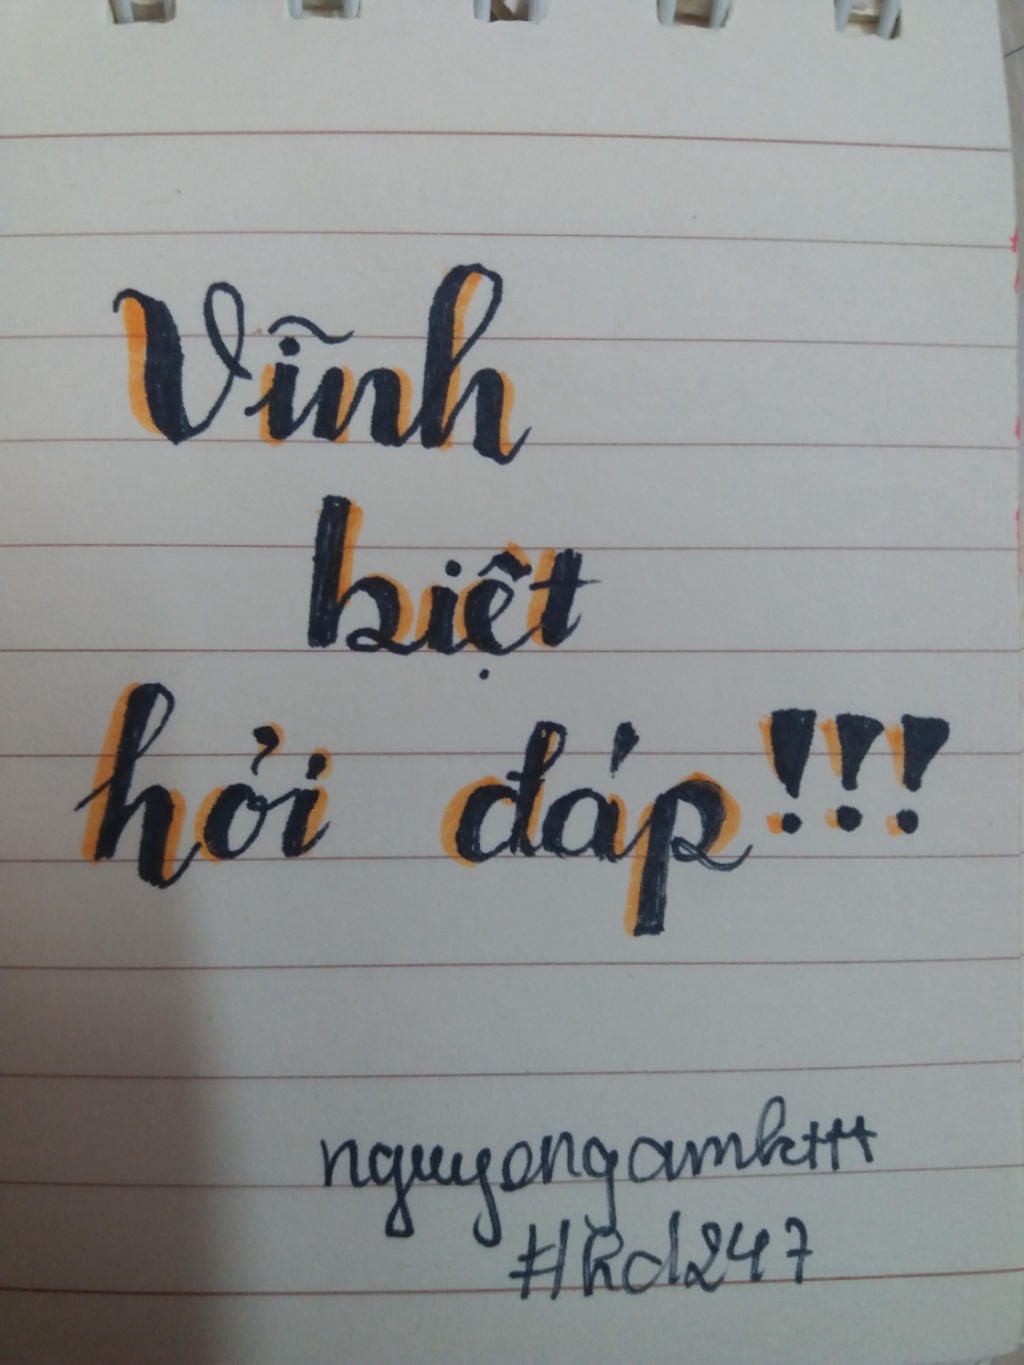 Vĩnh
biệt
hỏi đáp!!!
nguyengamkttt
#hd247